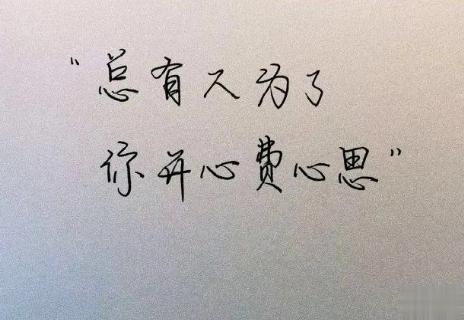 “总有人为了
你开心费心思”